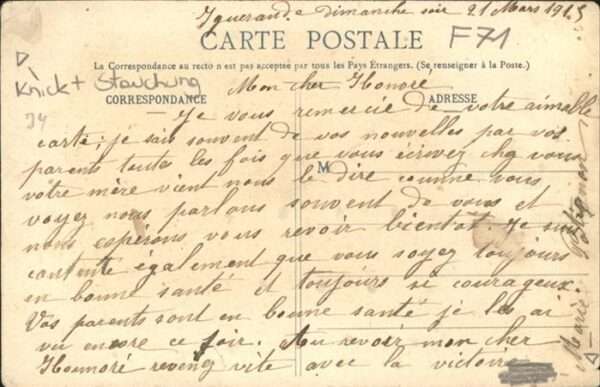 Iguerande dimanche soir 21 Mars 1915
F71
CARTE POSTALE
La Correspondance au recto n est pas acceptée par tous les Pays Étrangers. (Se renseigner à la Poste.)
Knick + Stauchung
CORRESPONDANCE
ADRESSE
34
M
Mon cher Honoré
Je vous remercie de votre aimable
carte; je sais souvent de vos nouvelles par vos
parents toutes les fois que vous écrivez chez vous
votre mère vient nous le dire comme vous
voyez nous parlons souvent de vous et
nous espérons vous revoir bientot. Je suis
contente également que vous soyez toujours
en bonne santé et toujours se courageux.
Vos parents sont en bonne santé je les ai
vu encore ce soir. Au revoir mon cher
Hounoré revenez vite avec la victoire
Marie